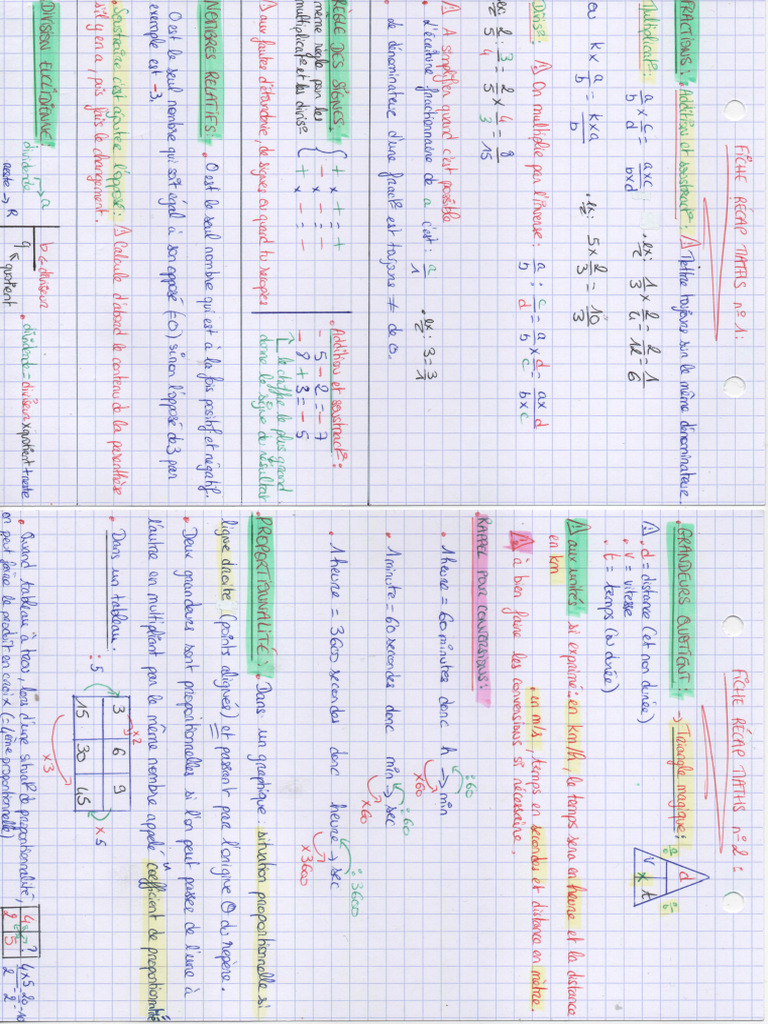 FICHE RÉCAP MATHS n°1:
FRACTIONS: Addition et soustract°: ⚠ Mettre toujours sur le même dénominateur.
Multiplicat°: a/b × c/d = a×c/b×d   . ex: 1/3 × 2/4 = 2/12 = 1/6
ou k × a/b = k×a/b   . ex: 5 × 2/3 = 10/3
Divis°: ⚠ On multiplie par l'inverse: a/b : c/d = a/b × d/c = a×d/b×c
ex: 2/5 : 3/4 = 2/5 × 4/3 = 8/15
⚠ A simplifier quand c'est possible
. L'écriture fractionnaire de a c'est: a/1   . ex: 3 = 3/1
. le dénominateur d'une fract° est toujours ≠ de 0.
RÈGLE DES SIGNES:
même règle pour les
multiplicat° et les divis°
{ + × + = +
- × - = +
+ × - = -
. Addition et soustract°:
- 5 - 2 = - 7
- 8 + 3 = - 5
le chiffre le plus grand
donne le signe du résultat
⚠ aux fautes d'étourderie, de signes ou quand tu recopies
NOMBRES RELATIFS: . 0 est le seul nombre qui est à la fois positif et négatif.
0 est le seul nombre qui soit égal à son opposé (=0) sinon l'opposé de 3 par
exemple est -3.
Soustraire c'est ajouter l'opposé: ⚠ Calcule d'abord le contenu de la parenthèse
s'il y en a, puis fais le changement.
DIVISION EUCLIDIENNE:
dividende → a | b ← diviseur
reste → R | q ← quotient
. dividende = diviseur × quotient + reste
FICHE RÉCAP MATHS n°2:
GRANDEURS QUOTIENT: → Triangle magique:
d
v × t
⚠ . d = distance (et non durée)
. v = vitesse
. t = temps (ou durée)
⚠ aux unités si exprimé: en km/h, le temps sera en heure et la distance
en km
. en m/s, temps en secondes et distance en mètre.
⚠ à bien faire les conversions si nécessaire.
RAPPEL POUR CONVERSIONS:
. 1 heure = 60 minutes donc h → min
:60
×60
. 1 minute = 60 secondes donc min → sec
:60
×60
. 1 heure = 3600 secondes donc heure → sec
:3600
×3600
PROPORTIONNALITÉ: . Dans un graphique: situation proportionnelle si
ligne droite (points alignés) et passant par l'origine O du repère.
. Deux grandeurs sont proportionnelles si l'on peut passer de l'une à
l'autre en multipliant par le même nombre appelé coefficient de proportionnalité
. Dans un tableau:
×2
:5 | 3 | 6 | 9 | ×5
15 | 30 | 45
×3
. Quand tableau à trou, lors d'une situat° de proportionnalité,
on peut faire le produit en croix (= 4ème proportionnelle)
4 | ?
2 | 5
4×5/2 = 20/2 = 10